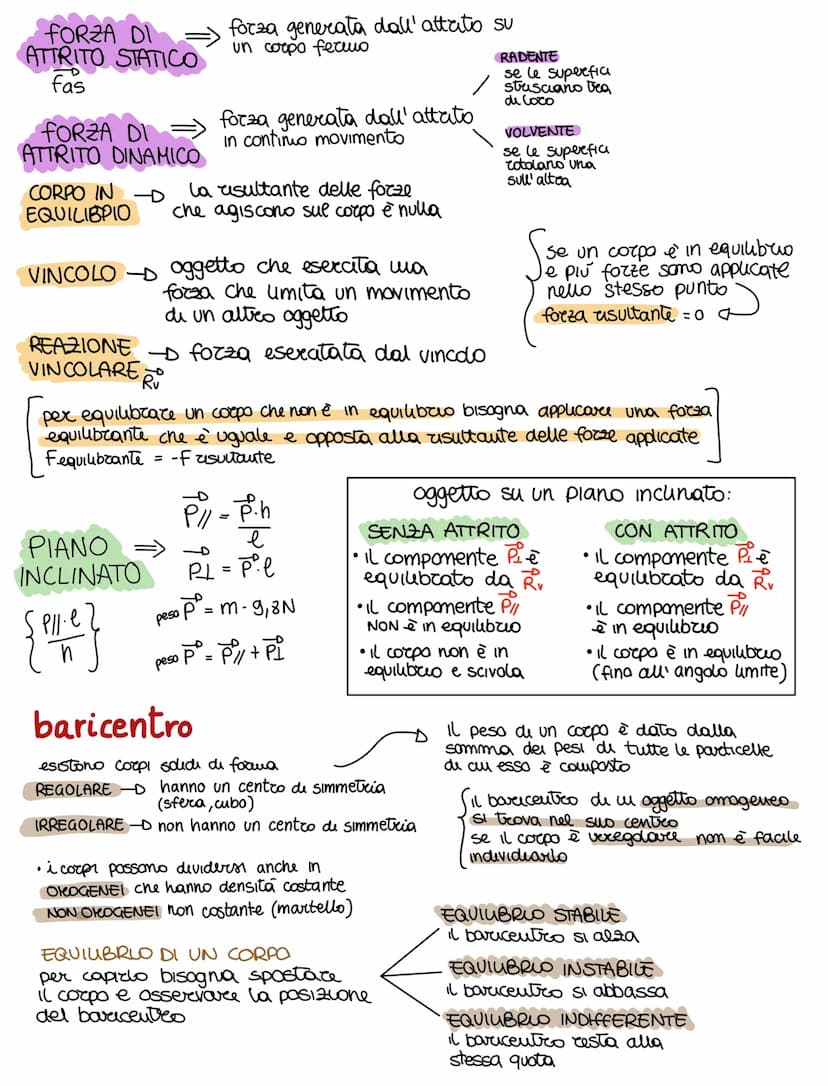 FORZA DI
ATTRITO STATICO
Fas
⇒ forza generata dall'attrito su
un corpo fermo
FORZA DI
ATTRITO DINAMICO
⇒ forza generata dall'attrito
in continuo movimento
RADENTE
se le superfici
strusciano tra
di loro
VOLVENTE
se le superfici
rotolano una
sull'altra
CORPO IN
EQUILIBRIO
→ la risultante delle forze
che agiscono sul corpo è nulla
VINCOLO → oggetto che esercita una
forza che limita un movimento
di un altro oggetto
se un corpo è in equilibrio
e più forze sono applicate
nello stesso punto
forza risultante = 0
REAZIONE
VINCOLARE Rv
→ forza esercitata dal vincolo
per equilibrare un corpo che non è in equilibrio bisogna applicare una forza
equilibrante che è uguale e opposta alla risultante delle forze applicate
Fequilibrante = -F risultante
PIANO
INCLINATO
{P//·l / h}
⇒ P// = P·h / l
P⊥ = P·l
peso P = m · 9,8N
peso P = P// + P⊥
oggetto su un piano inclinato:
SENZA ATTRITO
• il componente P⊥ è
equilibrato da Rv
• il componente P//
NON è in equilibrio
• il corpo non è in
equilibrio e scivola
CON ATTRITO
• il componente P⊥ è
equilibrato da Rv
• il componente P//
è in equilibrio
• il corpo è in equilibrio
(fino all'angolo limite)
baricentro
esistono corpi solidi di forma
REGOLARE → hanno un centro di simmetria
(sfera, cubo)
IRREGOLARE → non hanno un centro di simmetria
• i corpi possono dividersi anche in
OMOGENEI che hanno densità costante
NON OMOGENEI non costante (martello)
il peso di un corpo è dato dalla
somma dei pesi di tutte le particelle
di cui esso è composto
il baricentro di un oggetto omogeneo
si trova nel suo centro
se il corpo è irregolare non è facile
individuarlo
EQUILIBRIO DI UN CORPO
per capirlo bisogna spostare
il corpo e osservare la posizione
del baricentro
EQUILIBRIO STABILE
il baricentro si alza
EQUILIBRIO INSTABILE
il baricentro si abbassa
EQUILIBRIO INDIFFERENTE
il baricentro resta alla
stessa quota